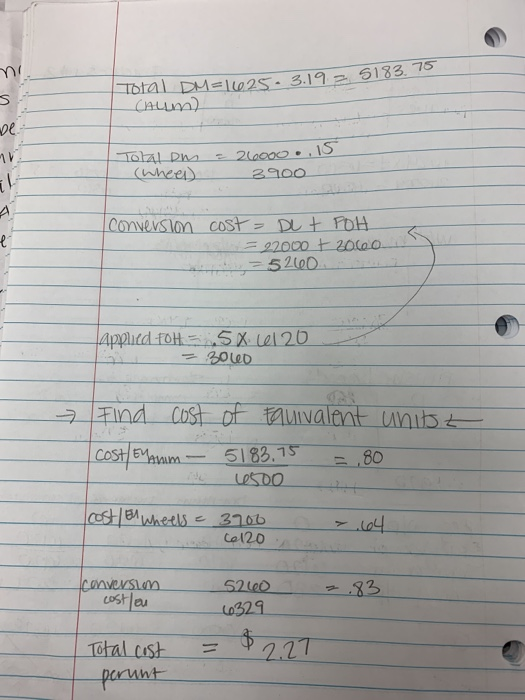 Total DM = 1625 · 3.19 = 5183.75
(Alum)
Total DM = 26000 · .15
(wheel) 3900
Conversion cost = DL + FOH
= 22000 + 3060
= 5260
applied FOH = .5 x 6120
= 3060
→ Find cost of Equivalent units ←
cost/EU Alum — 5183.75 = .80
6500
cost/EU wheels = 3900 = .64
6120
conversion 5260 = .83
cost/eu 6329
Total cost = $ 2.27
perunit